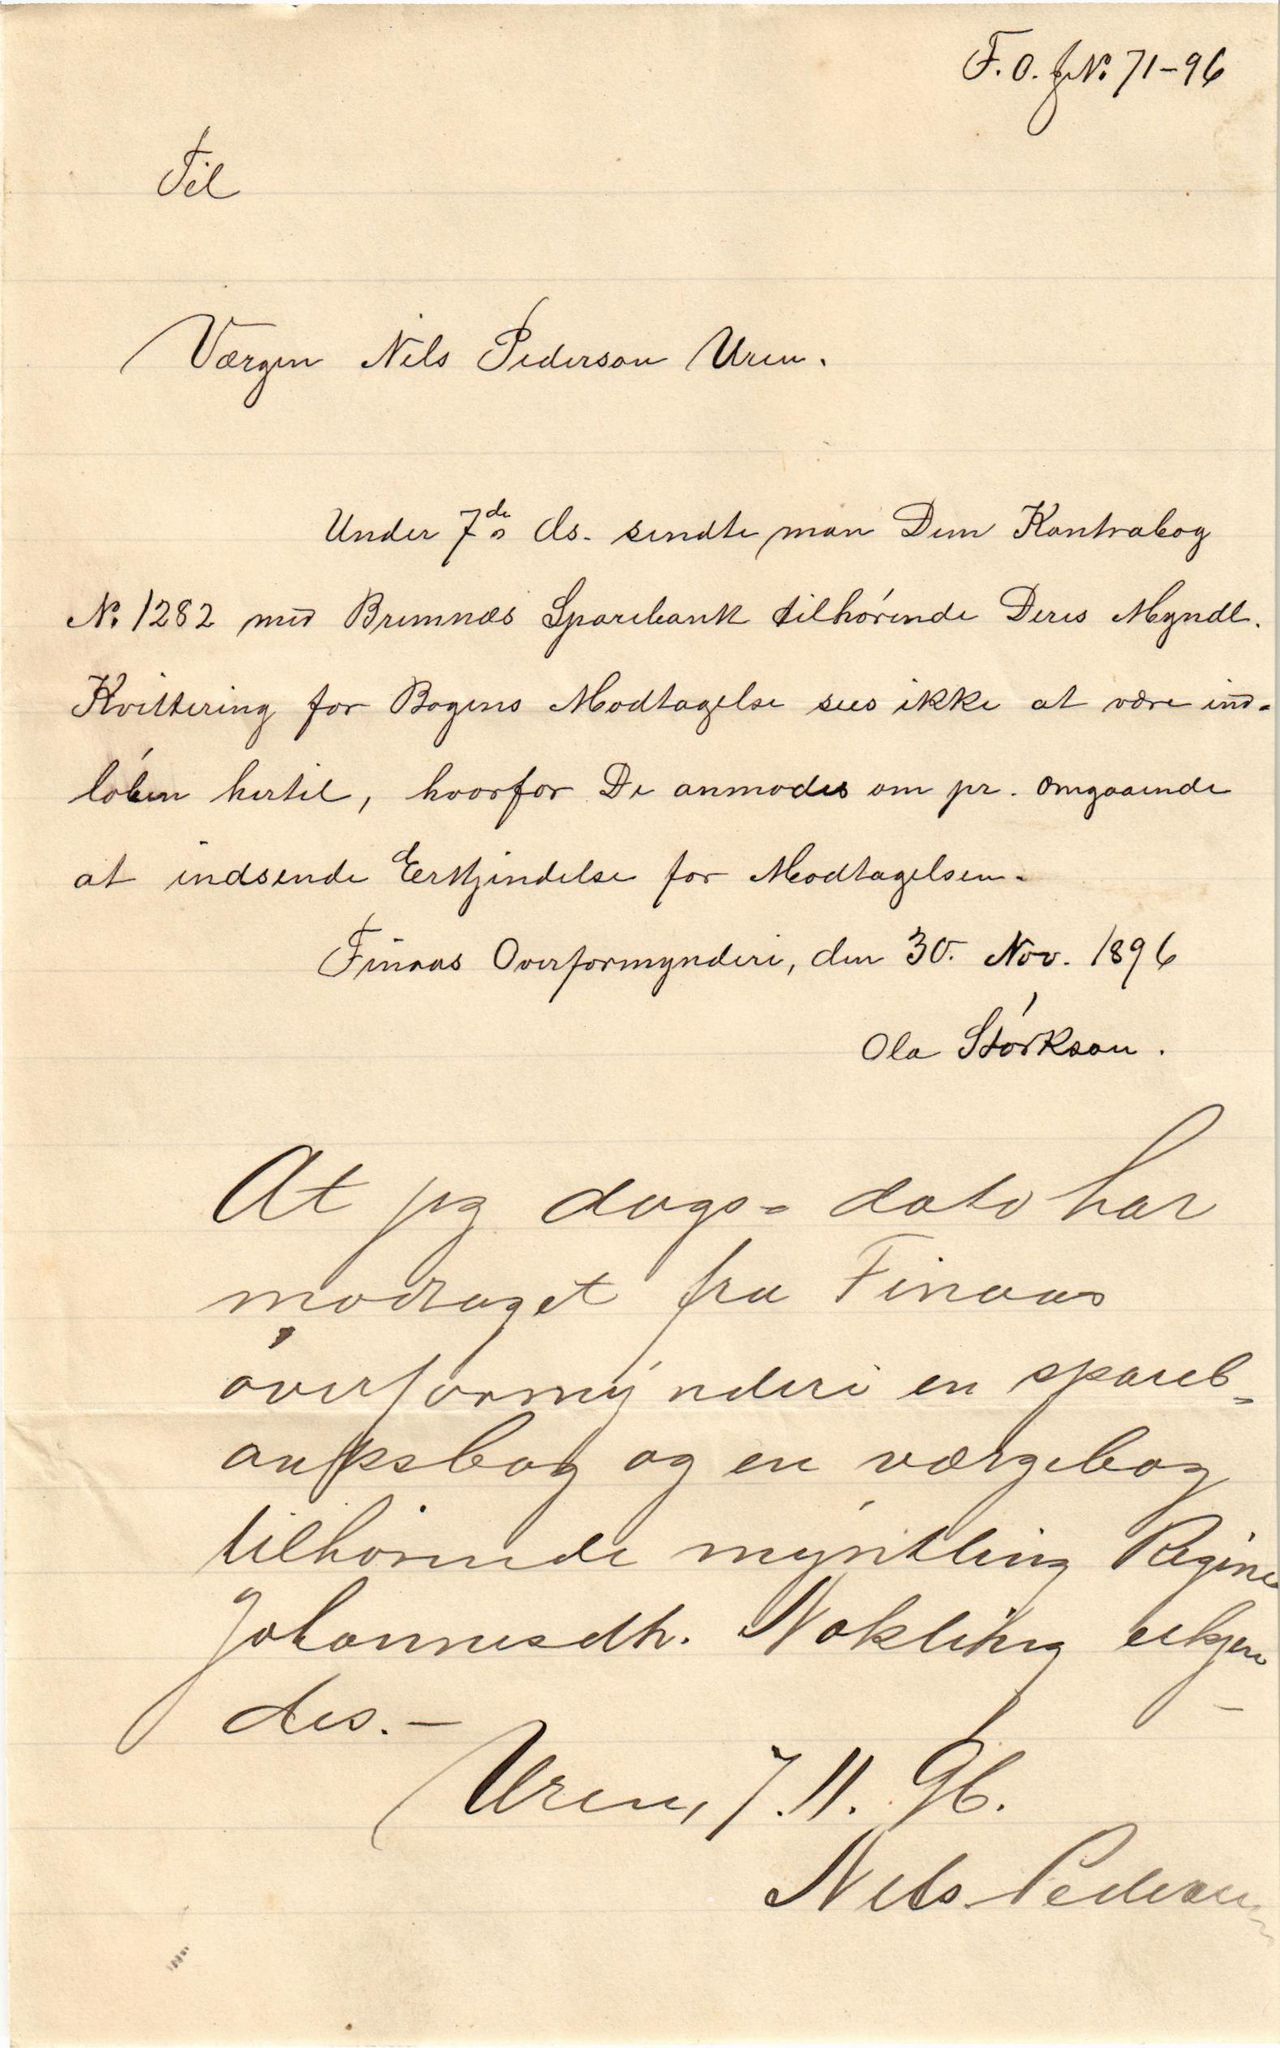 F. O. J. No 71-96
Til
Værgen Nils Pederson Uren.
Under 7de ds. sendte man Dem Kontrabog
No 1282 med Bremnæs Sparebank tilhørende Deres Myndl.
Kvittering for Bogens Modtagelse sees ikke at være ind-
løben hertil, hvorfor De anmodes om pr. omgaaende
at indsende Erkjendelse for Modtagelsen.
Finaas Overformynderi, den 30. Nov. 1896
Ola Størkson.
At jeg dags= dato har
modtaget fra Finaas
overformynderi en spareb=
anksbog og en værgebog
tilhørende myntling Regine
Johannesdtr. Nokling erkjen
des.—
Uren, 7. 11. 96.
Nils Pederson